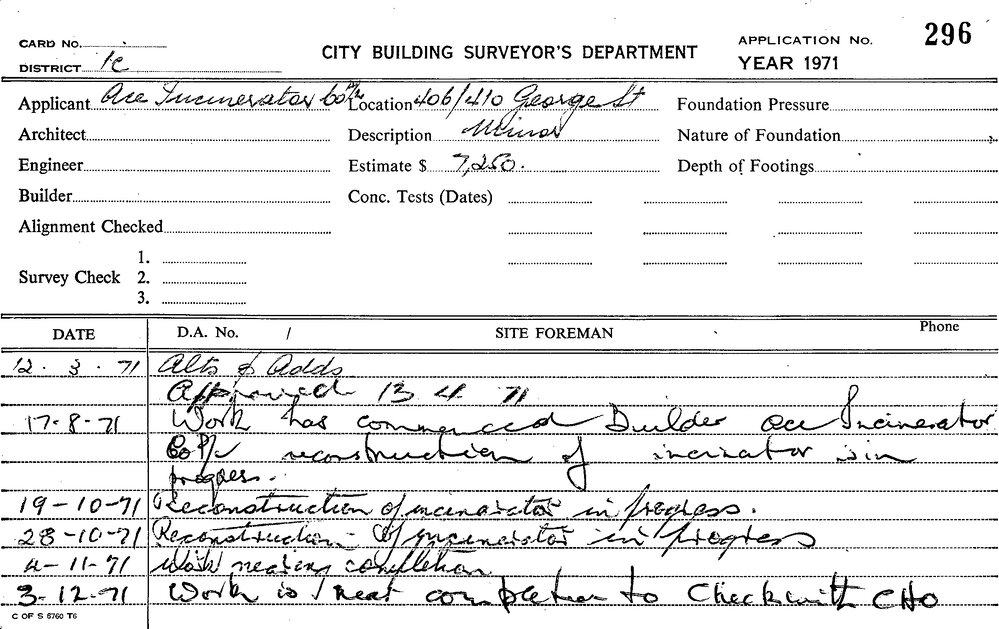 CARD No.
DISTRICT 1c
CITY BUILDING SURVEYOR'S DEPARTMENT
APPLICATION No. 296
YEAR 1971
Applicant Ace Incinerator Co P/L Location 406/410 George St Foundation Pressure
Architect Description Minor Nature of Foundation
Engineer Estimate $ 7,250. Depth of Footings
Builder Conc. Tests (Dates)
Alignment Checked
Survey Check 1.
2.
3.
DATE D.A. No. / SITE FOREMAN Phone
12. 3. 71 Alts & Adds
Approved 13 4 71
17-8-71 Work has commenced Builder Ace Incinerator
Co P/L reconstruction of incinator is in
progress.
19-10-71 Reconstruction of incinerator in progress.
28-10-71 Reconstruction of incinerator in progress
4-11-71 Work nearing completion
3-12-71 Work is near completion to Check with CHO
C OF S 5760 T6